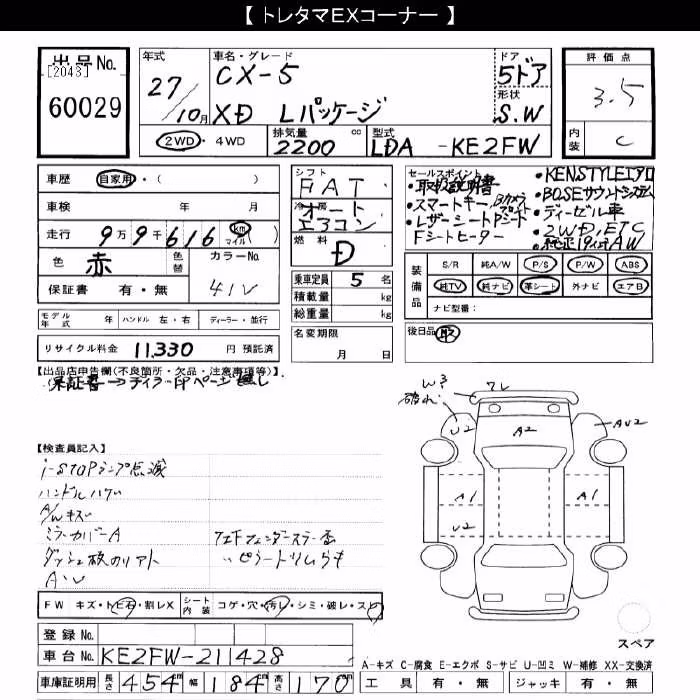 【 トレタマEXコーナー 】
出品No.
[2043]
60029
年式
27/10月
車名・グレード
CX-5
XD Lパッケージ
ドア
5ドア
形状
S.W
評価点
3.5
内装
C
2WD・4WD
排気量
2200 cc
型式
LDA-KE2FW
車歴 自家用・( )
車検 年 月
走行 9万9千616 km マイル
色 赤 色替
カラーNo.
41V
保証書 有・無
シフト
FAT
冷房
オートエアコン
燃料
D
乗車定員 5 名
積載量 kg
総重量 kg
名変期限
月 日
セールスポイント
・取扱説明書
・スマートキー、Bカメラ
・レザーシート Pシート
Fシートヒーター
・KENSTYLEエアロ
・BOSEサウンドシステム
・ディーゼル車
・2WD, ETC
・純正19インチAW
装備品
S/R 純A/W P/S P/W ABS
純TV 純ナビ 革シート 外ナビ エアB
ナビ型番:
後日品 取
モデル年式 年 ハンドル 左・右 ディーラー・並行
リサイクル料金 11,330 円 預託済
【出品店申告欄(不良箇所・欠品・注意事項等)】
保証書→ディーラー印ページ無し
【検査員記入】
i-STOPランプ点滅
ハンドルハゲ
A/Wキズ
ミラーカバーA
A・U
W3
破れ
ワレ
U2
A2
AU2
A1
A1
U2
FW キズ・トビ石・割レX
シート内装 コゲ・穴・汚レ・シミ・破レ・スレ
登録No.
車台No. KE2FW-211428
車庫証明用 長さ 454 幅 184 高さ 170
スペア
A-キズ C-腐食 E-エクボ S-サビ U-凹ミ W-補修 XX-交換済
工具 有・無 ジャッキ 有・無